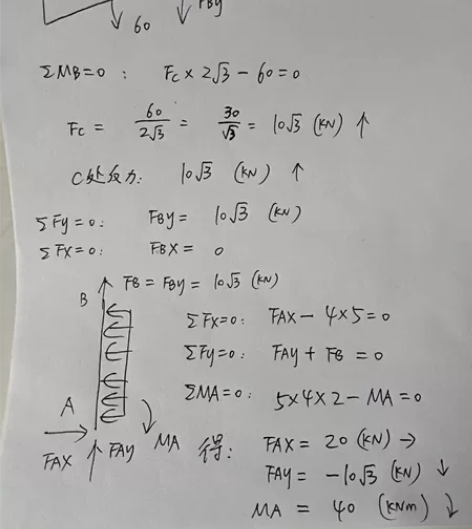 60 FBY
ΣMB=0: Fc×2√3-60=0
Fc= 60/2√3 = 30/√3 = 10√3 (KN) ↑
C处反力: 10√3 (KN) ↑
ΣFy=0: FBY= 10√3 (KN)
ΣFX=0: FBX= 0
B FB=FBY=10√3 (KN)
ΣFX=0: FAX-4×5=0
ΣFy=0: FAY+FB=0
ΣMA=0: 5×4×2-MA=0
A
FAX FAY MA 得: FAX=20(KN)→
FAY=-10√3 (KN) ↓
MA = 40 (KNm) ↓